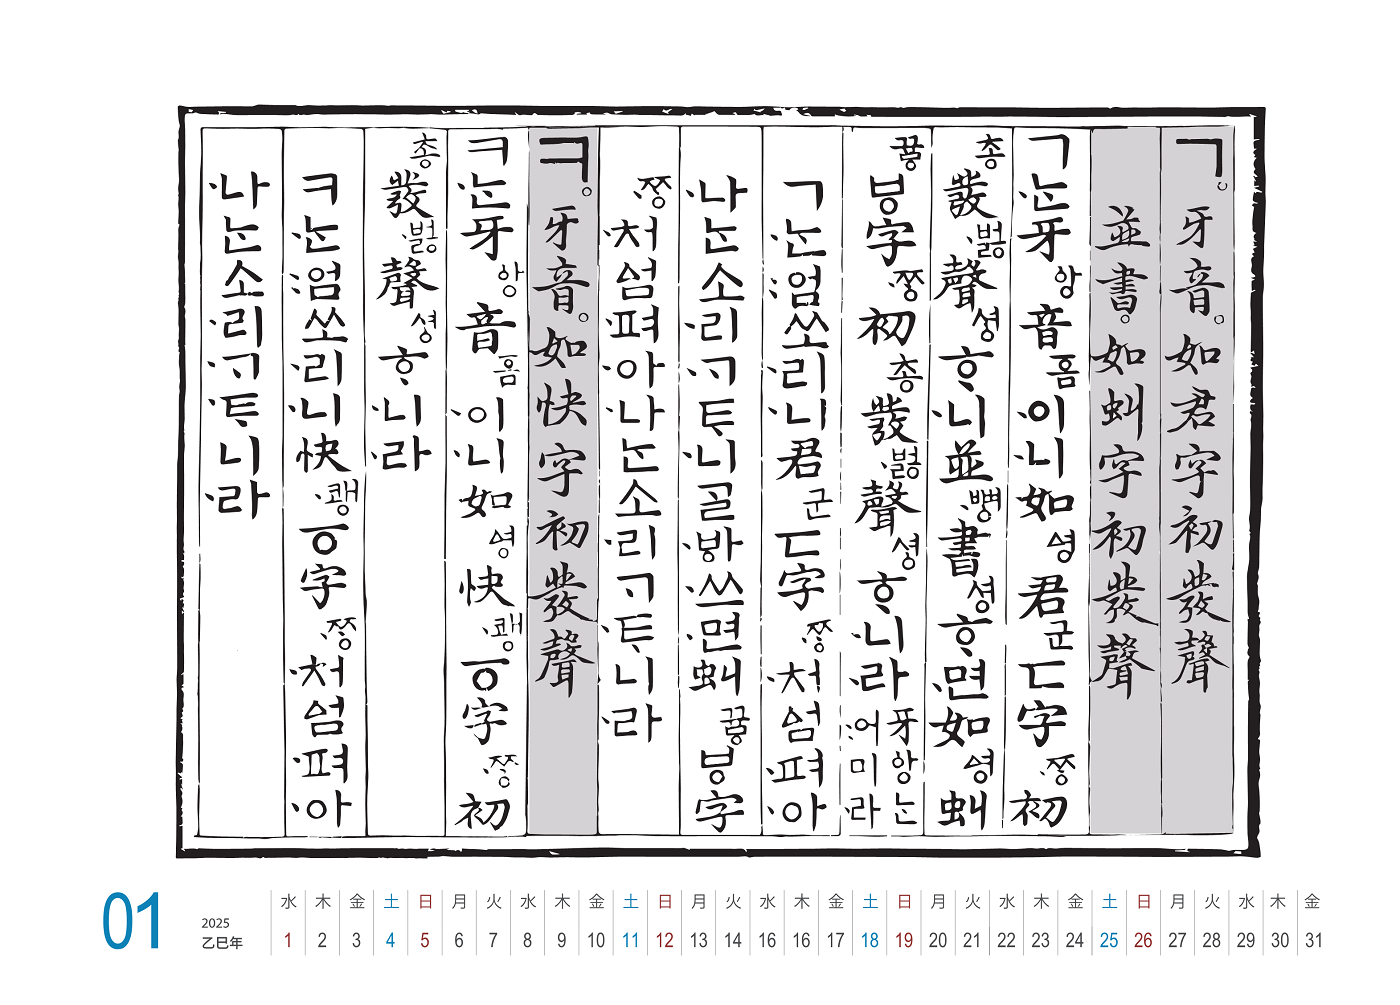 ㄱ。牙音。如君字初發聲
並書。如虯字初發聲
ㄱ·ᄂᆞᆫ牙ᅌᅡᆼ音ᅙᅳᆷ·이·니如ᅀᅧᆼ君군ㄷ字·ᄍᆞᆼ初
총發·벓聲셩ᄒᆞ·니並·뼝書셩ᄒᆞ·면如ᅀᅧᆼ虯
뀨ᇢㅸ字·ᄍᆞᆼ初총發·벓聲셩ᄒᆞ·니·라牙ᅌᅡᆼᄂᆞᆫ:어미·라
ㄱ·ᄂᆞᆫ:엄쏘·리·니君군ㄷ字·ᄍᆞᆼ·처ᅀᅥᆷ·펴·아
·나ᄂᆞᆫ소·리·ᄀᆞ·ᄐᆞ·니ᄀᆞᆯ·ᄫᅡ·쓰·면虯뀨ᇢㅸ字
·ᄍᆞᆼ·처ᅀᅥᆷ·펴·아·나ᄂᆞᆫ소·리·ᄀᆞ·ᄐᆞ·니·라
ㅋ。牙音。如快字初發聲
ㅋ·ᄂᆞᆫ牙ᅌᅡᆼ音ᅙᅳᆷ·이·니如ᅀᅧᆼ快·쾡ㆆ字·ᄍᆞᆼ初
총發·벓聲셩ᄒᆞ·니·라
ㅋ·ᄂᆞᆫ:엄쏘·리·니快·쾡ㆆ字·ᄍᆞᆼ·처ᅀᅥᆷ·펴·아
·나ᄂᆞᆫ소·리·ᄀᆞ·ᄐᆞ·니·라
01
2025
乙巳年
水 木 金 土 日 月 火 水 木 金 土 日 月 火 水 木 金 土 日 月 火 水 木 金 土 日 月 火 水 木 金
1 2 3 4 5 6 7 8 9 10 11 12 13 14 16 16 17 18 19 20 21 22 23 24 25 26 27 28 29 30 31